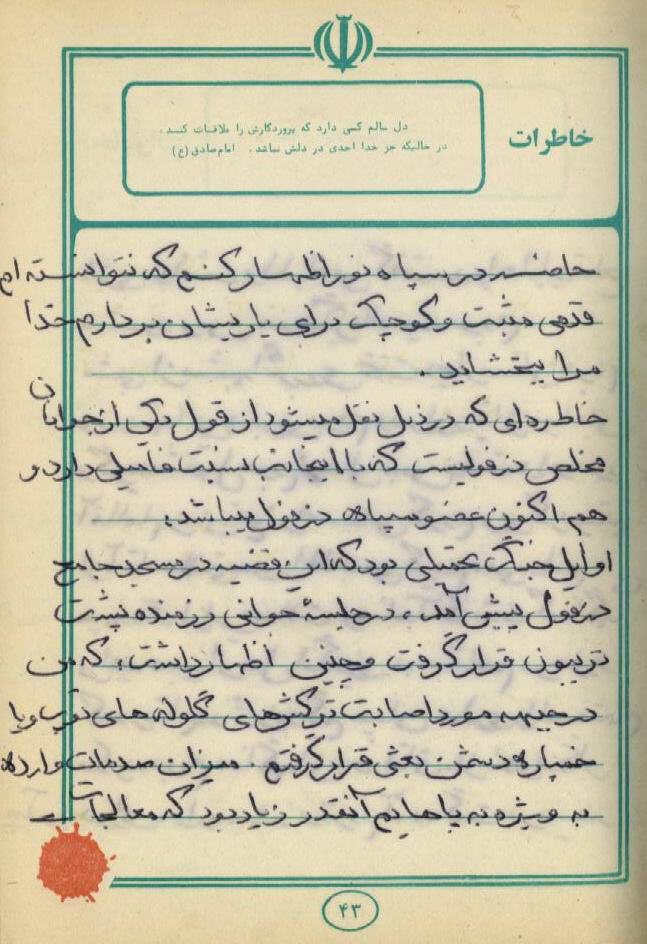 خاطرات
دل سالم کسی دارد که پروردگارش را ملاقات کند،
در حالیکه جز خدا احدی در دلش نباشد. امام صادق (ع)
حاضر در سپاه نور اظهار کنم که نتوانسته ام
قدمی مثبت و کوچک برای یاریشان بردارم خدا
مرا ببخشاید.
خاطره ای که در ذیل نقل میشود از قول یکی از جوانان
مخلص دزفولیست که با اینجانب نسبت فامیلی دارد و
هم اکنون عضو سپاه دزفول میباشد:
اوایل جنگ تحمیلی بود که این قضیه در مسجد جامع
دزفول پیش آمد، در جلسهٔ جوانی رزمنده پشت
تریبون قرار گرفت و چنین اظهار داشت: که من
در جبهه مورد اصابت ترکش‌های گلوله های توپ و یا
خمپاره دشمن بعثی قرار گرفتم. میزان صدمات وارده
به ویژه به پاهایم آنقدر زیاد بود که معالجات
۴۳